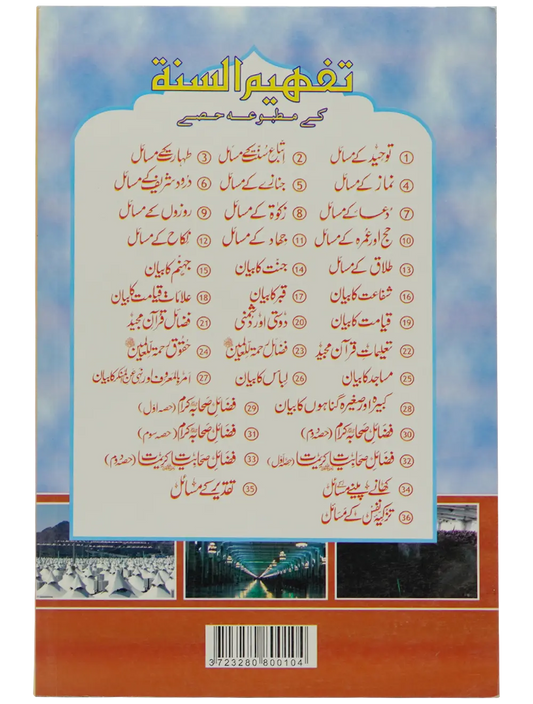 تفہیم السنۃ
کے مطبوعہ حصے
1 توحید کے مسائل 2 اتباعِ سنت کے مسائل 3 طہارت کے مسائل
4 نماز کے مسائل 5 جنازے کے مسائل 6 درود شریف کے مسائل
7 دُعا کے مسائل 8 زکوٰۃ کے مسائل 9 روزوں کے مسائل
10 حج اور عمرہ کے مسائل 11 جہاد کے مسائل 12 نکاح کے مسائل
13 طلاق کے مسائل 14 جنت کا بیان 15 جہنم کا بیان
16 شفاعت کا بیان 17 قبر کا بیان 18 علاماتِ قیامت کا بیان
19 قیامت کا بیان 20 دوستی اور دشمنی 21 فضائل قرآن مجید
22 تعلیمات قرآن مجید 23 فضائل رحمۃ للعالمین ﷺ 24 حقوق رحمۃ للعالمین ﷺ
25 مساجد کا بیان 26 لباس کا بیان 27 امر بالمعروف اور نہی عن المنکر کا بیان
28 کبیرہ اور صغیرہ گناہوں کا بیان 29 فضائل صحابہ کرام (حصہ اول)
30 فضائل صحابہ کرام (حصہ دوم) 31 فضائل صحابہ کرام (حصہ سوم)
32 فضائل صحابیات کریمات (حصہ اول) 33 فضائل صحابیات کریمات (حصہ دوم)
34 کھانے پینے کے مسائل 35 تقدیر کے مسائل
36 تزکیہ نفس کے مسائل
3 723280 800104